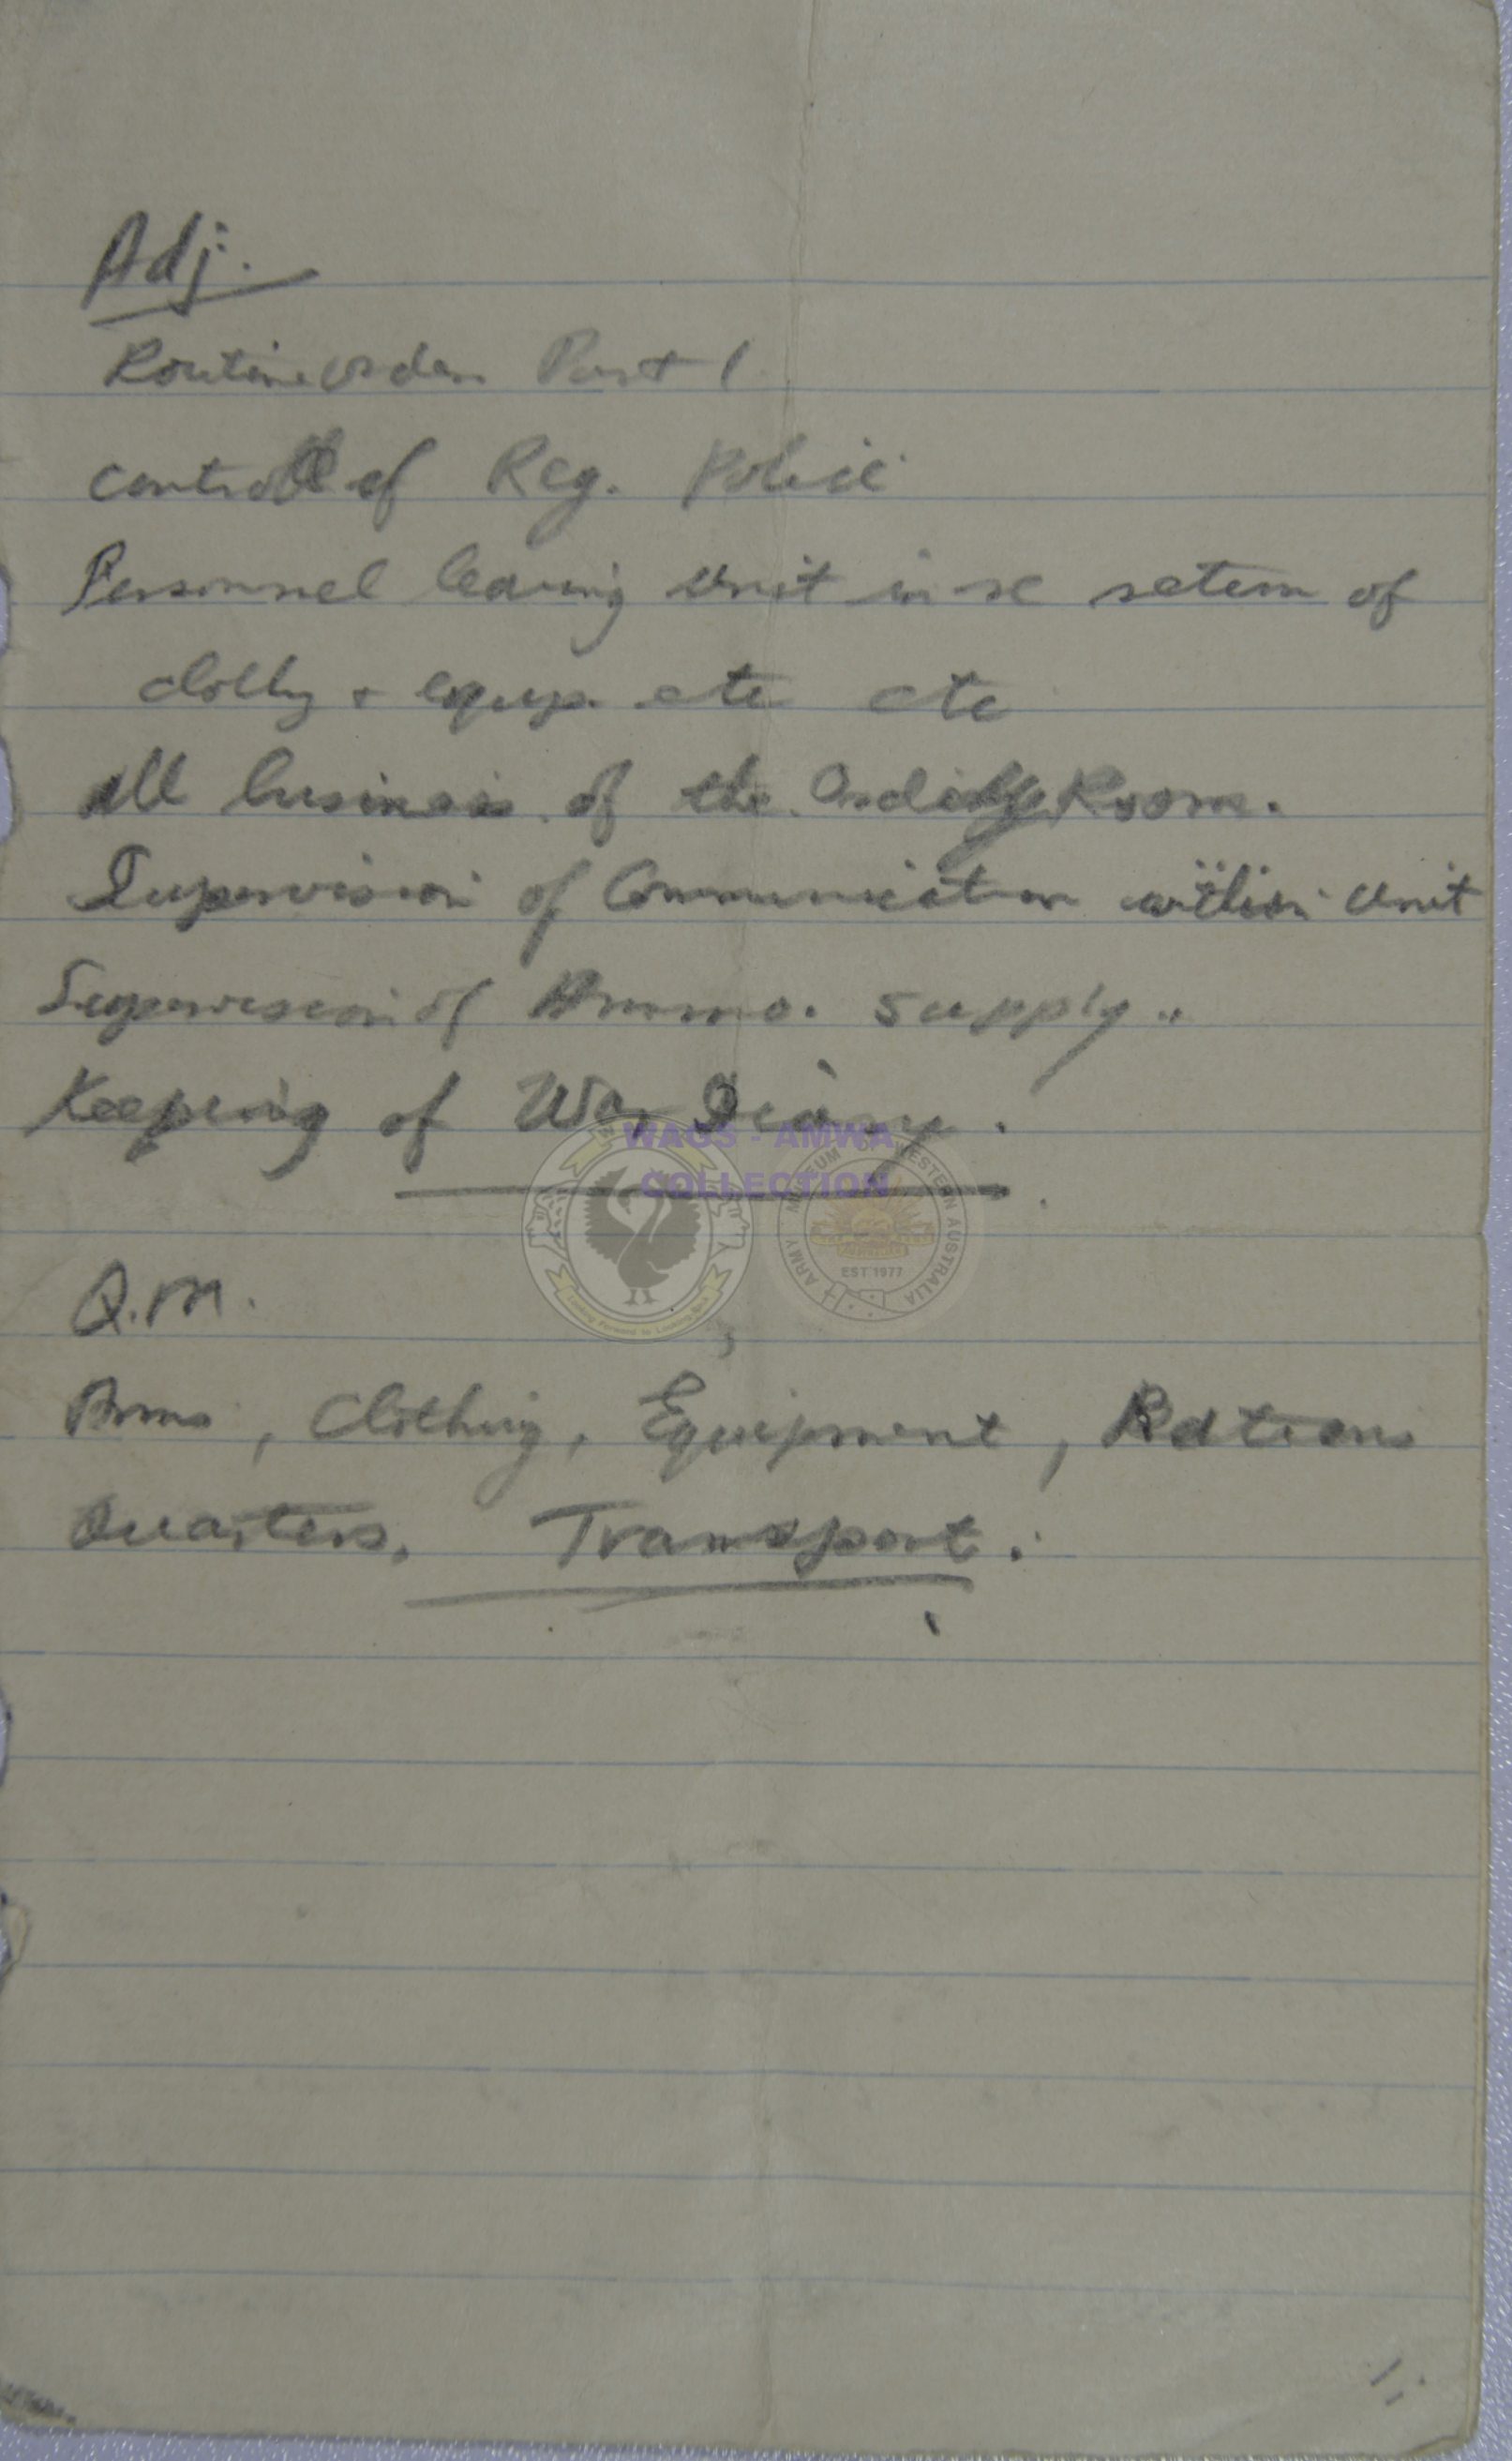 Adj.
Routine orders Part 1
control of Reg. Police
Personnel leaving unit in re return of
clothg + equip. etc etc
All business of the Orderly Room.
Supervision of Communication within Unit
Supervision of Ammo. Supply.
Keeping of War Diary.
WAGS - AMWA
COLLECTION
ARMY MUSEUM OF WESTERN AUSTRALIA
EST 1977
Looking Forward to Looking Back
Q.M.
Arms, Clothing, Equipment, Rations
Quarters. Transport.